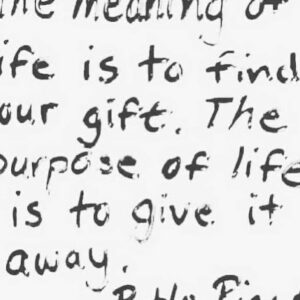 the meaning of
life is to find
your gift. The
purpose of life
is to give it
away.